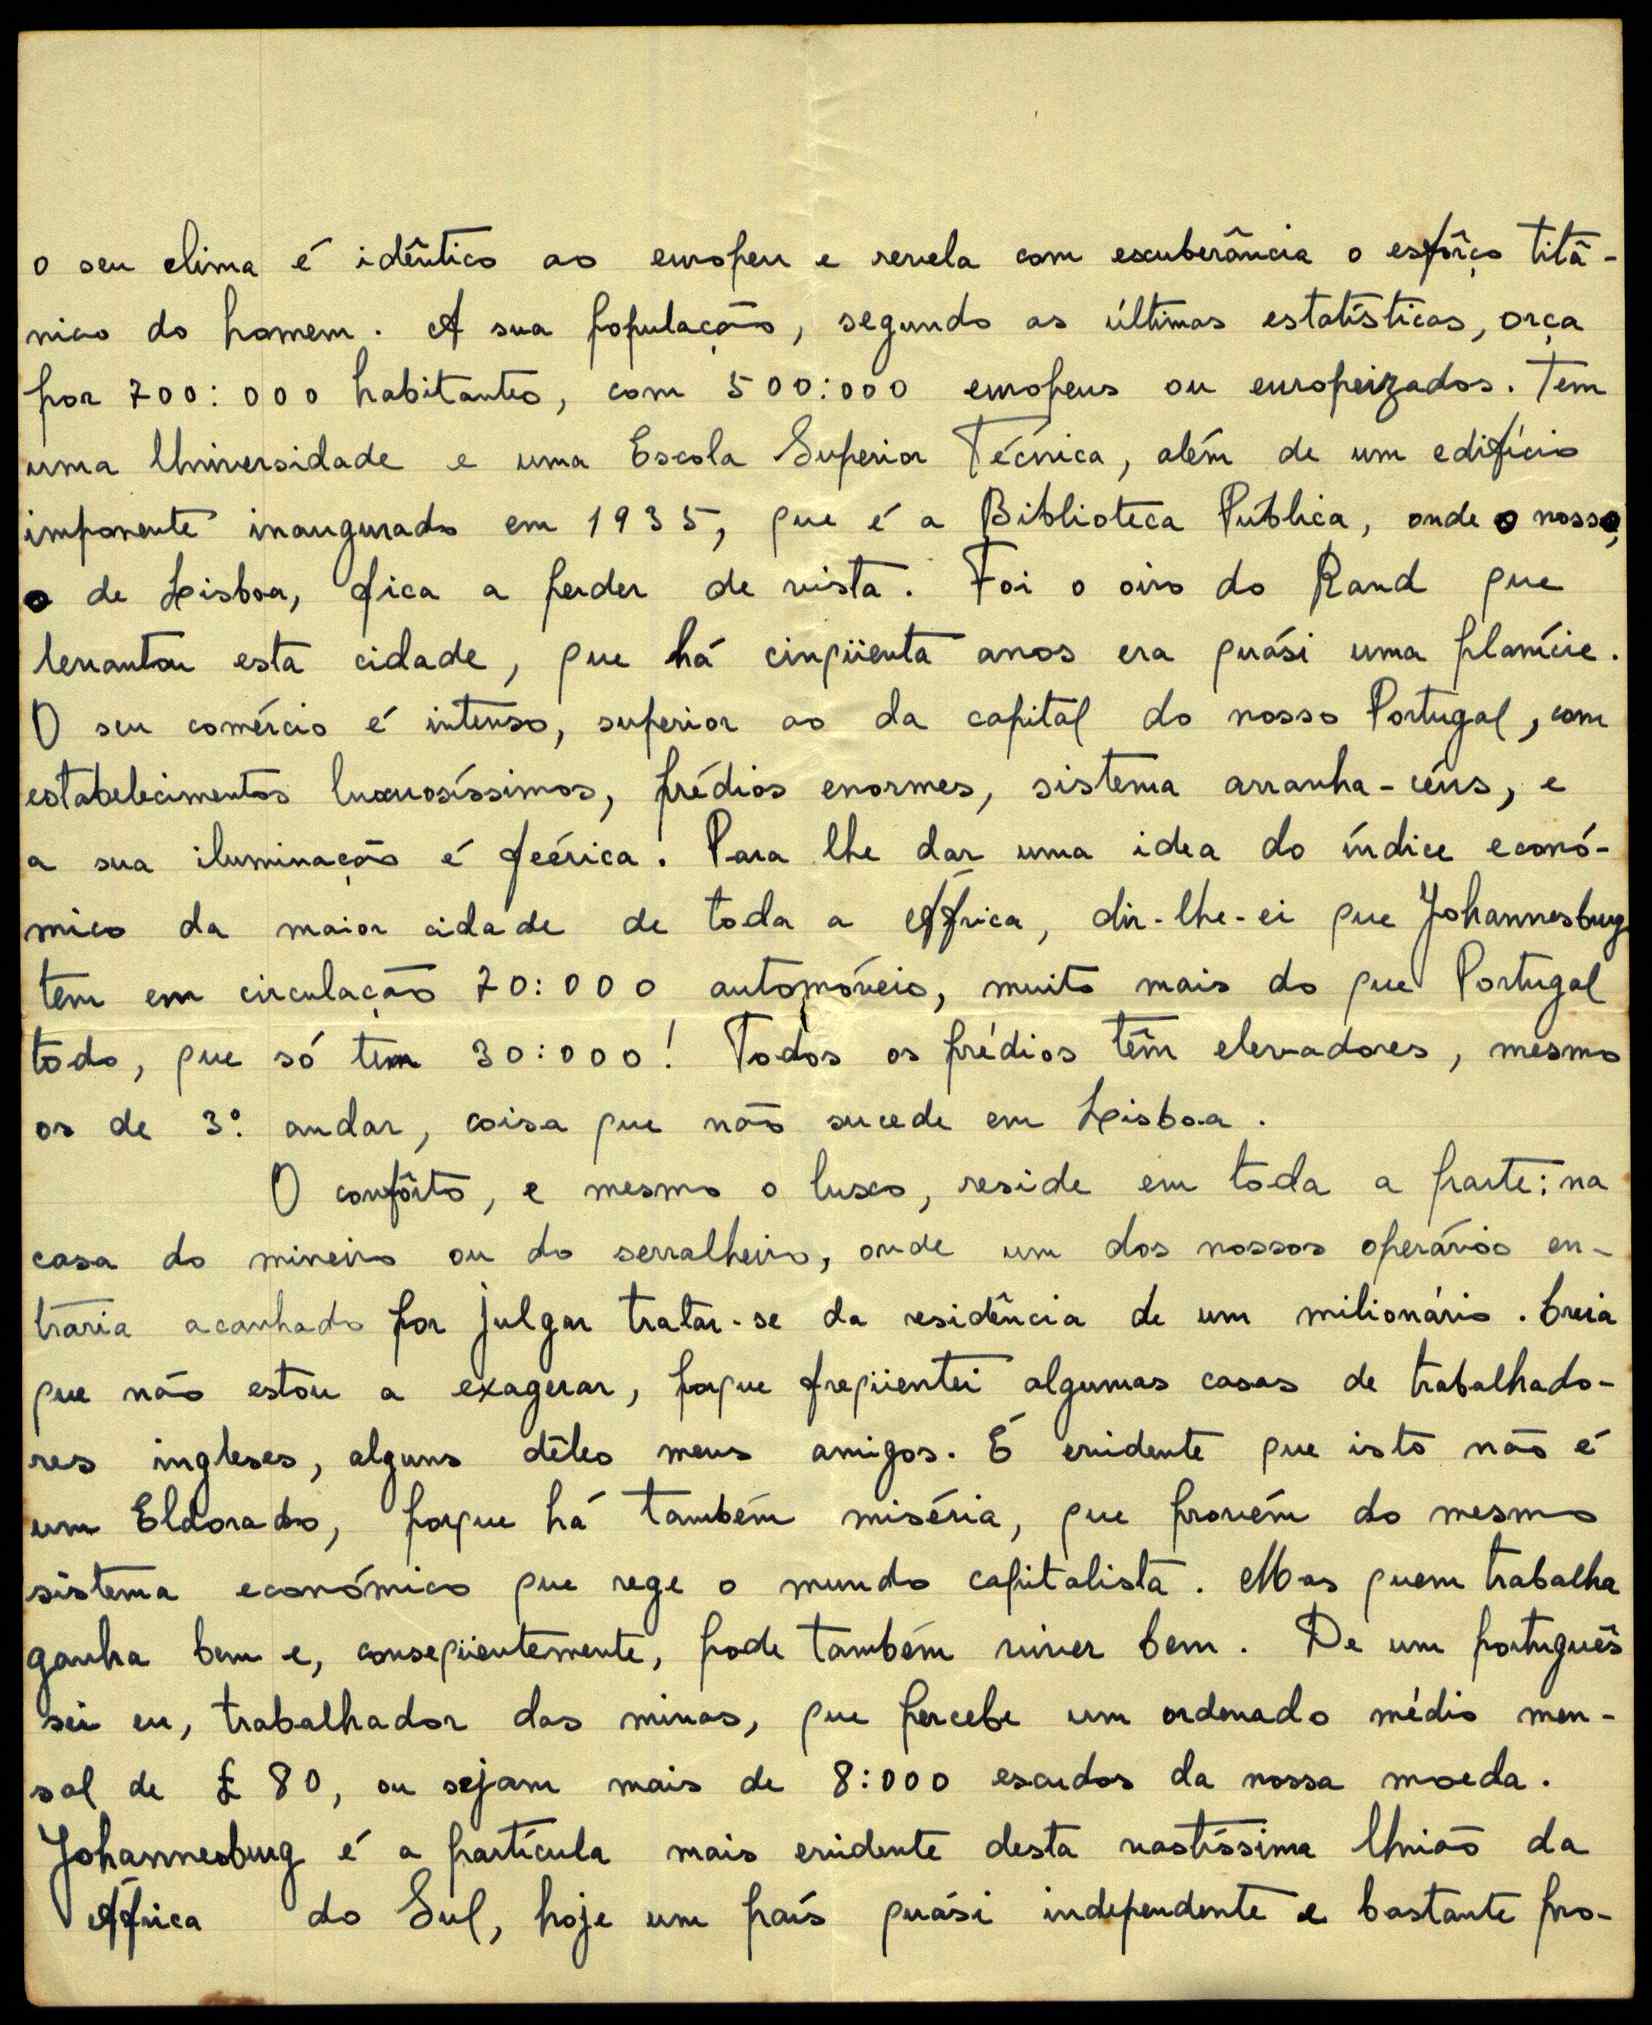 o seu clima é idêntico ao europeu e revela com exuberância o esfôrço titâ-
nico do homem. A sua população, segundo as últimas estatísticas, orça
por 700:000 habitantes, com 500:000 europeus ou europeizados. Tem
uma Universidade e uma Escola Superior Técnica, além de um edifício
imponente inaugurado em 1935, que é a Biblioteca Pública, onde o nosso,
o de Lisboa, fica a perder de vista. Foi o oiro do Rand que
levantou esta cidade, que há cinqüenta anos era quási uma planície.
O seu comércio é intenso, superior ao da capital do nosso Portugal, com
estabelecimentos luxuosíssimos, prédios enormes, sistema arranha-céus, e
a sua iluminação é feérica. Para lhe dar uma idea do índice econó-
mico da maior cidade de toda a África, dir-lhe-ei que Johannesburg
tem em circulação 70:000 automóveis, muito mais do que Portugal
todo, que só tem 30:000! Todos os prédios têm elevadores, mesmo
os de 3º. andar, coisa que não sucede em Lisboa.
O confôrto, e mesmo o luxo, reside em toda a parte: na
casa do mineiro ou do serralheiro, onde um dos nossos operários en-
traria acanhado por julgar tratar-se da residência de um milionário. Creia
que não estou a exagerar, porque freqüentei algumas casas de trabalhado-
res ingleses, alguns dêles meus amigos. É evidente que isto não é
um Eldorado, porque há também miséria, que provém do mesmo
sistema económico que rege o mundo capitalista. Mas quem trabalha
ganha bem e, conseqüentemente, pode também viver bem. De um português
sei eu, trabalhador das minas, que percebe um ordenado médio men-
sal de £ 80, ou sejam mais de 8:000 escudos da nossa moeda.
Johannesburg é a partícula mais evidente desta vastíssima União da
África do Sul, hoje um país quási independente e bastante pro-